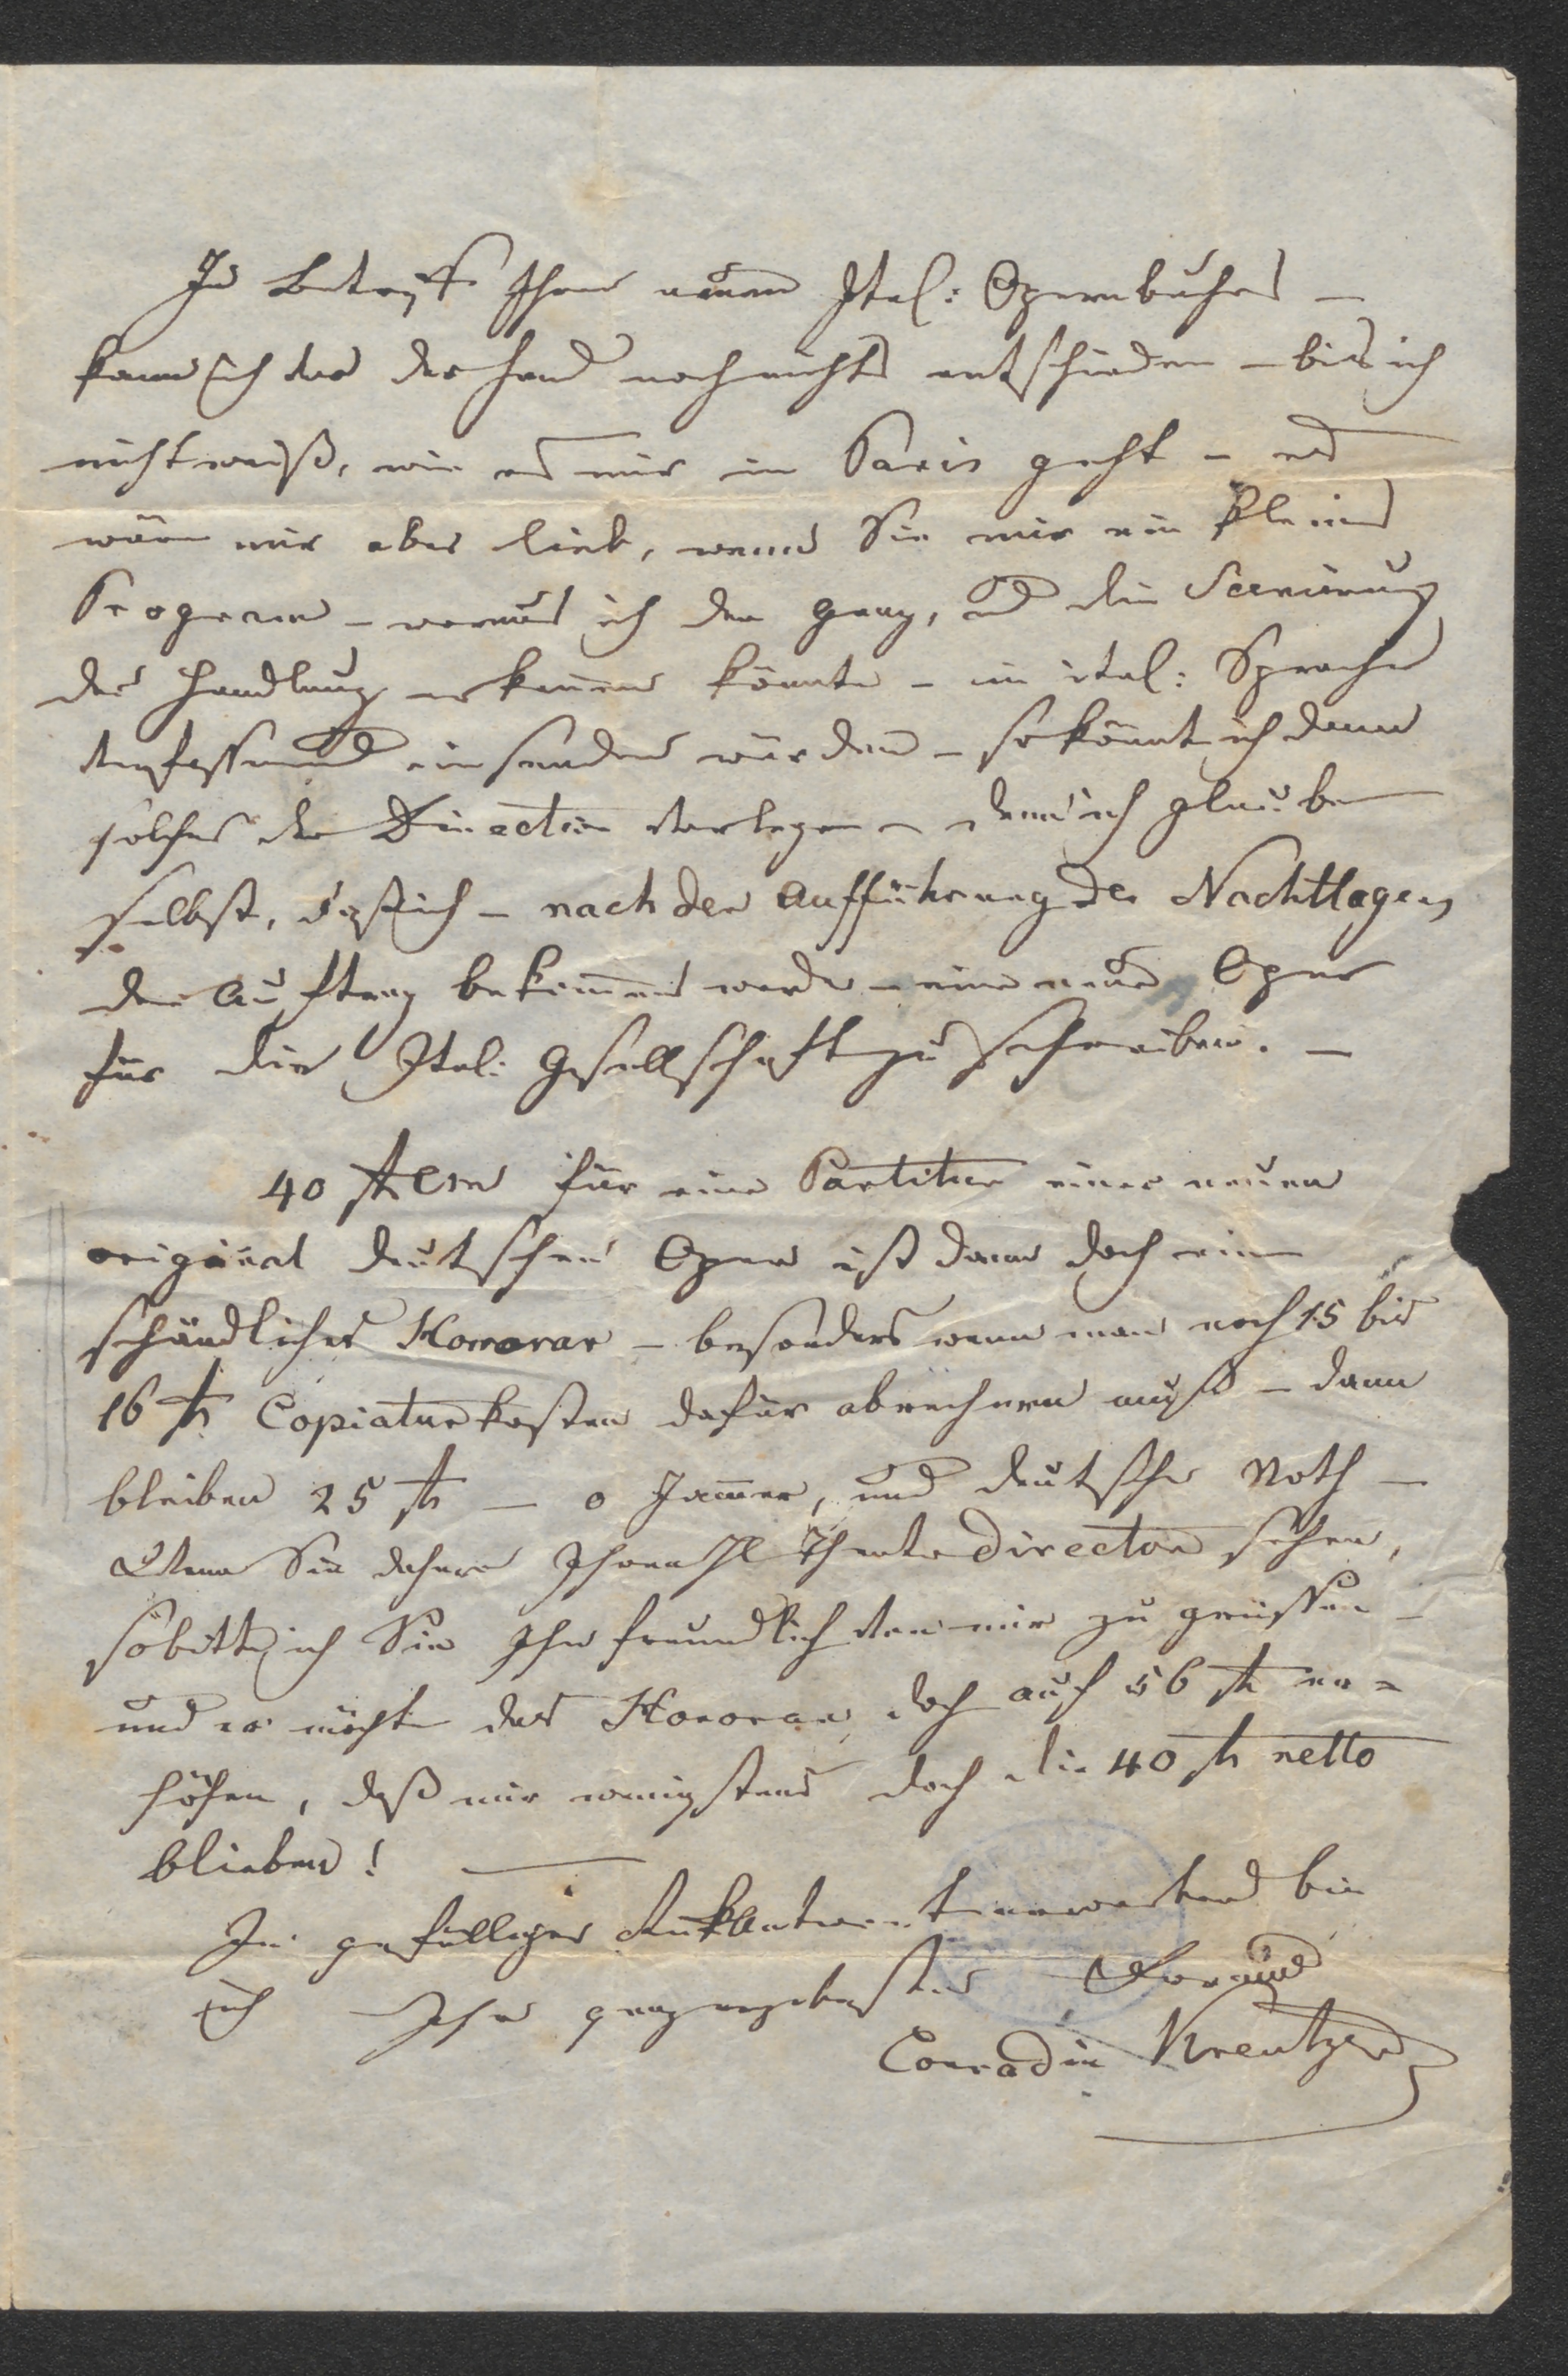 In Betreff Ihres neuen Ital: Opernbuches —
kann ich vor der Hand noch nichts entscheiden — bis ich
nicht weiß, wie es mir in Paris geht — es
wäre mir aber lieb, wenn Sie mir ein kleines
Program — woraus ich den Gang, und die Scenirung
der Handlung erkennen könnte — in ital: Sprache
einsenden würden — so könnt ich dann
solches der Direction vorlegen — denn ich glaube
selbst, daß ich — nach der Aufführung des Nachtlagers
den Auftrag bekommen werde — eine neue Oper
für die Ital: Gesellschaft zu schreiben. —
40 für eine Partitur einer neuen
original deutschen Oper ist dann doch ein
schändliches Honorar — besonders wenn man noch 15 bis
16 Copiaturkosten dafür abrechnen muß — dann
bleiben 25 — o Jammer, und deutsche Noth —
Wenn Sie daher Ihren H Theater Director sehen,
so bitte ich Sie Ihn freundlich von mir zu grüssen —
und er möchte das Honorar doch auf 56 er=
höhen, daß mir wenigstens doch die 40 netto
blieben! —
In gefälliger Rükantwort erwartend bin
ich Ihr ganz ergebenster Freund
Conradin Kreutzer